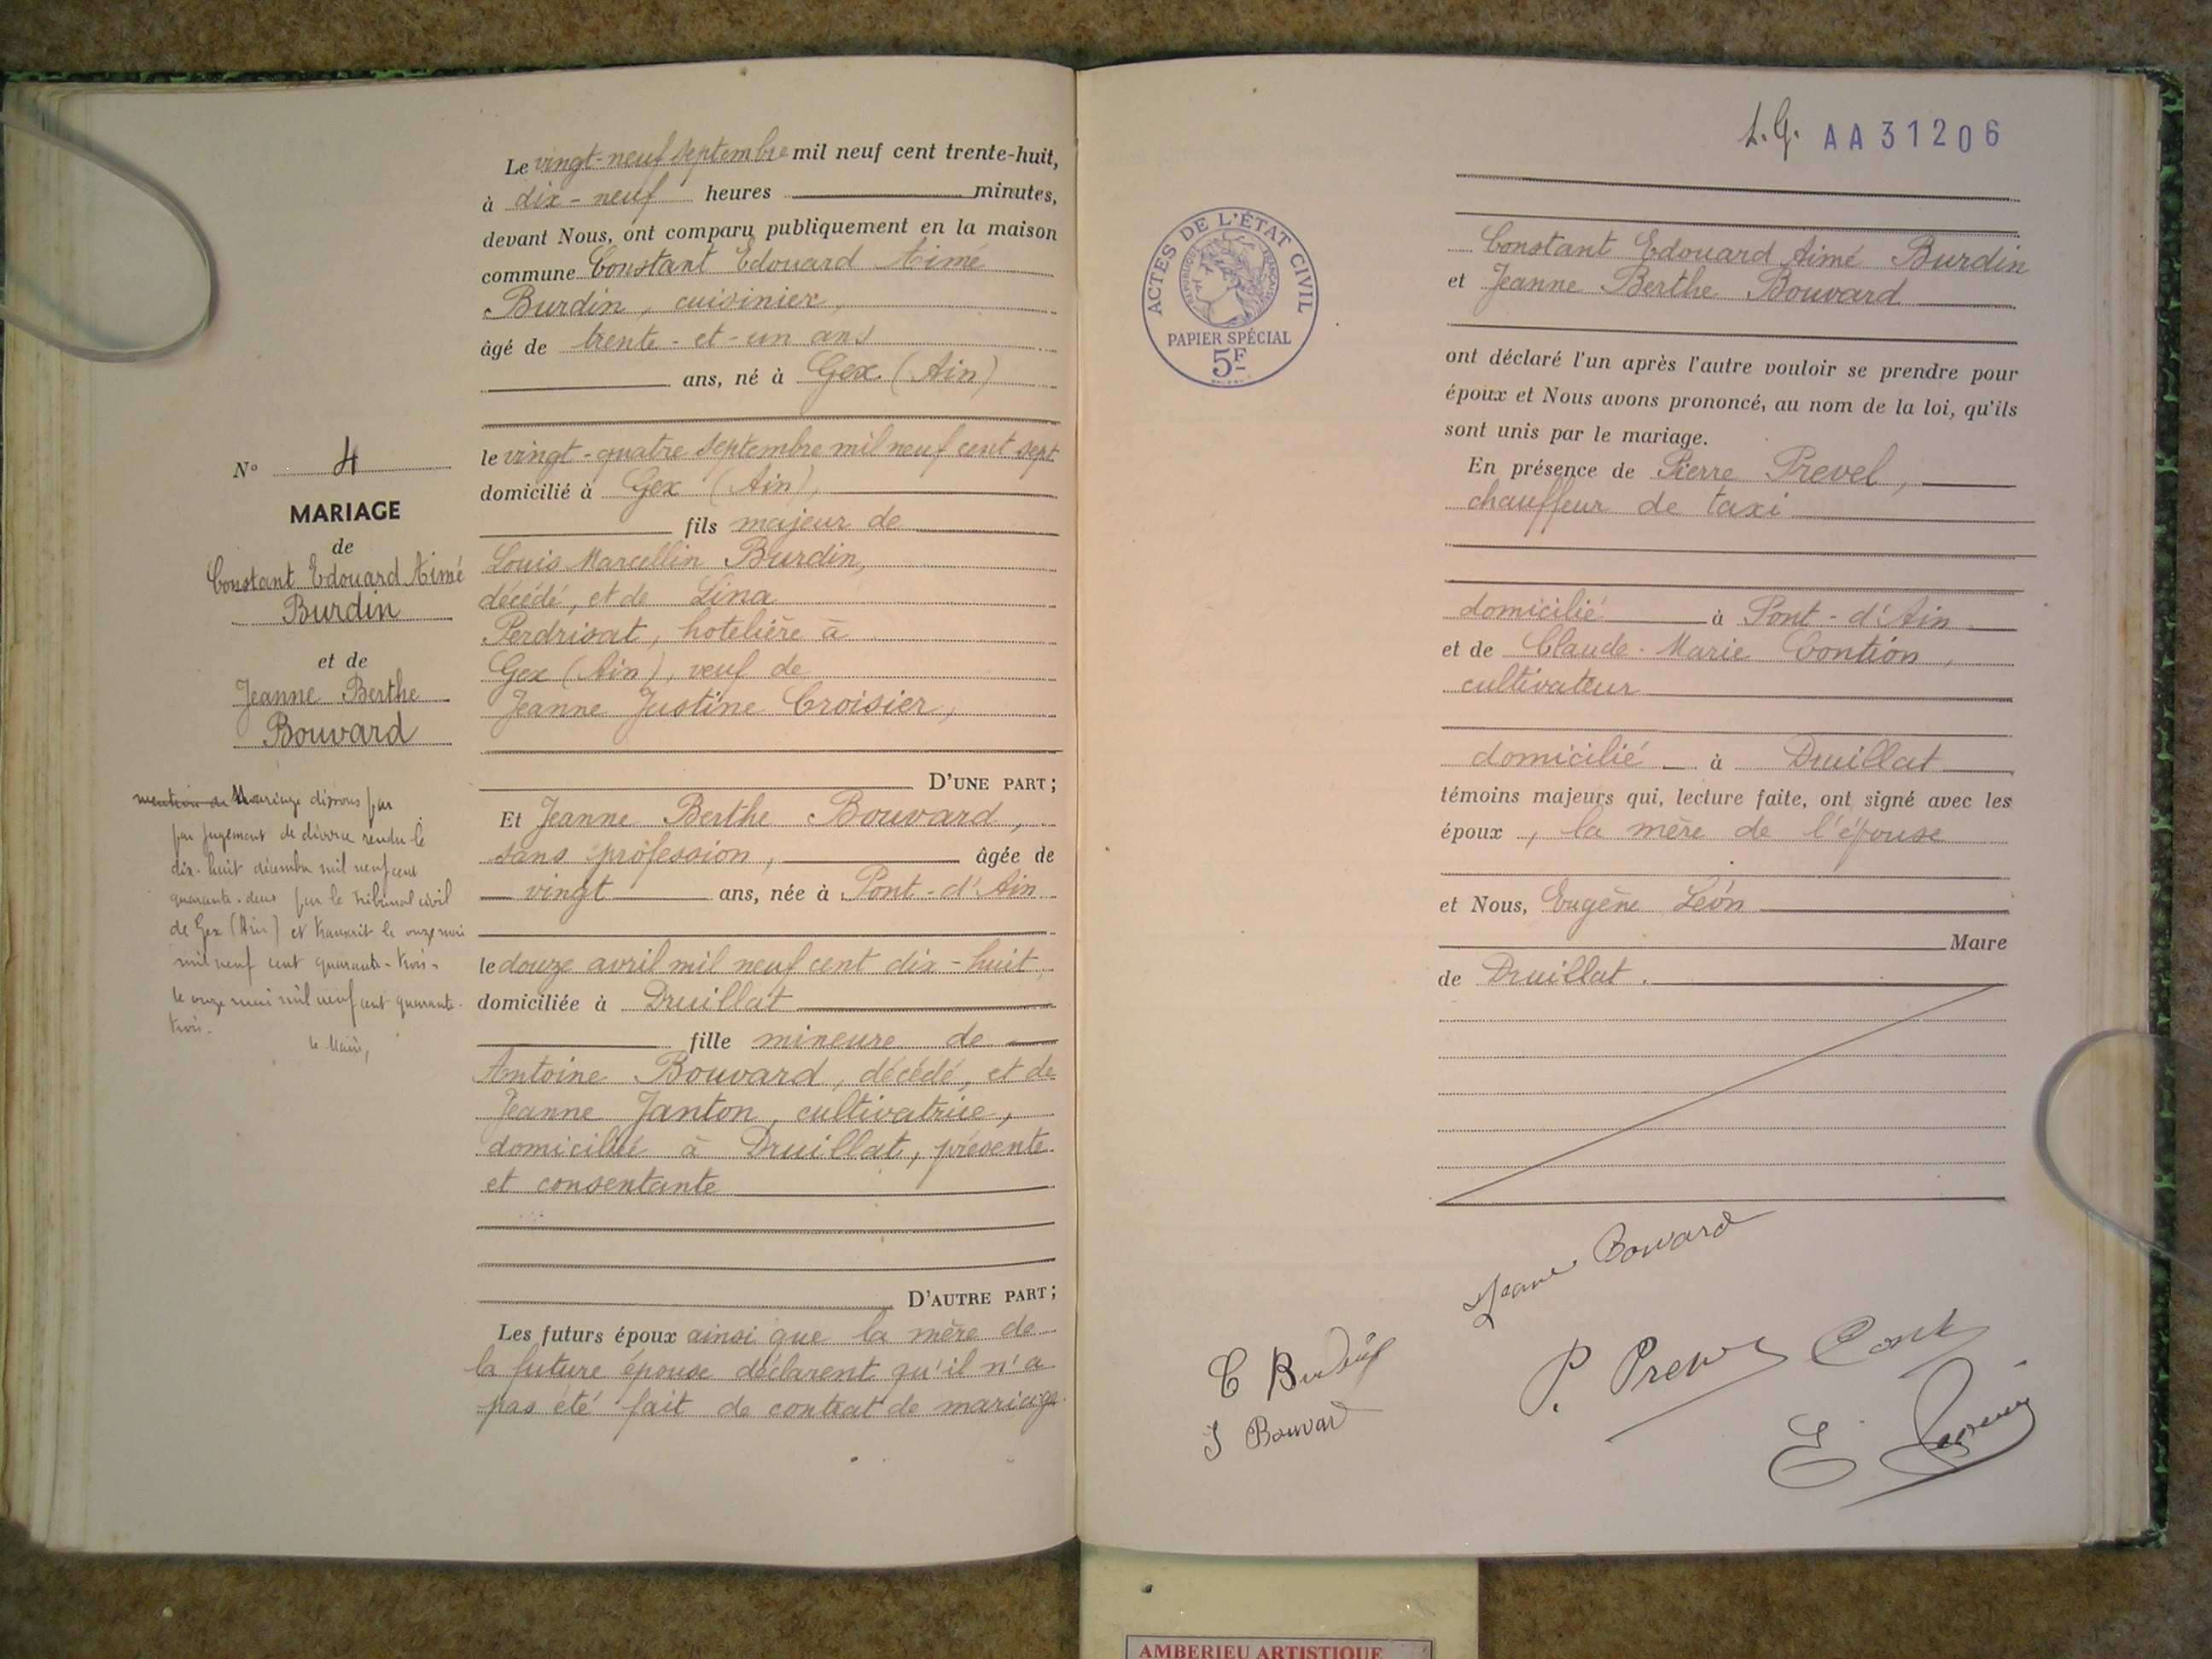 Le vingt-neuf septembre mil neuf cent trente-huit,
à dix-neuf heures minutes,
devant Nous, ont comparu publiquement en la maison
commune Constant Edouard Aimé
Burdin, cuisinier,
âgé de trente-et-un ans
ans, né à Gex (Ain)
le vingt-quatre septembre mil neuf cent sept
domicilié à Gex (Ain),
fils majeur de
Louis Marcellin Burdin,
décédé, et de Lina
Perdrisat, hotelière à
Gex (Ain), veuf de
Jeanne Justine Croisier,
D'UNE PART;
Et Jeanne Berthe Bouvard,
sans profession, âgée de
vingt ans, née à Pont-d'Ain
le douze avril mil neuf cent dix-huit,
domiciliée à Druillat
fille mineure de
Antoine Bouvard, décédé, et de
Jeanne Janton, cultivatrice,
domiciliée à Druillat, présente
et consentante
D'AUTRE PART;
Les futurs époux ainsi que la mère de
la future épouse déclarent qu'il n'a
pas été fait de contrat de mariage.
N° 4
MARIAGE
de
Constant Edouard Aimé
Burdin
et de
Jeanne Berthe
Bouvard
mention de Mariage dissous par
par jugement de divorce rendu le
dix-huit décembre mil neuf cent
quarante-deux par le Tribunal civil
de Gex (Ain) et transcrit le onze mai
mil neuf cent quarante-trois.
le onze mai mil neuf cent quarante-
trois.
le Maire,
L.G. AA31206
ACTES DE L'ÉTAT CIVIL
RÉPUBLIQUE FRANÇAISE
PAPIER SPÉCIAL
5F
Constant Edouard Aimé Burdin
et Jeanne Berthe Bouvard
ont déclaré l'un après l'autre vouloir se prendre pour
époux et Nous avons prononcé, au nom de la loi, qu'ils
sont unis par le mariage.
En présence de Pierre Prevel,
chauffeur de taxi
domicilié à Pont-d'Ain
et de Claude-Marie Contion,
cultivateur
domicilié à Druillat
témoins majeurs qui, lecture faite, ont signé avec les
époux, la mère de l'épouse
et Nous, Eugène Léon
Maire
de Druillat.
Jeanne Bouvard
C Burdin
J Bouvard
P. Prevel
E
AMBERIEU ARTISTIQUE